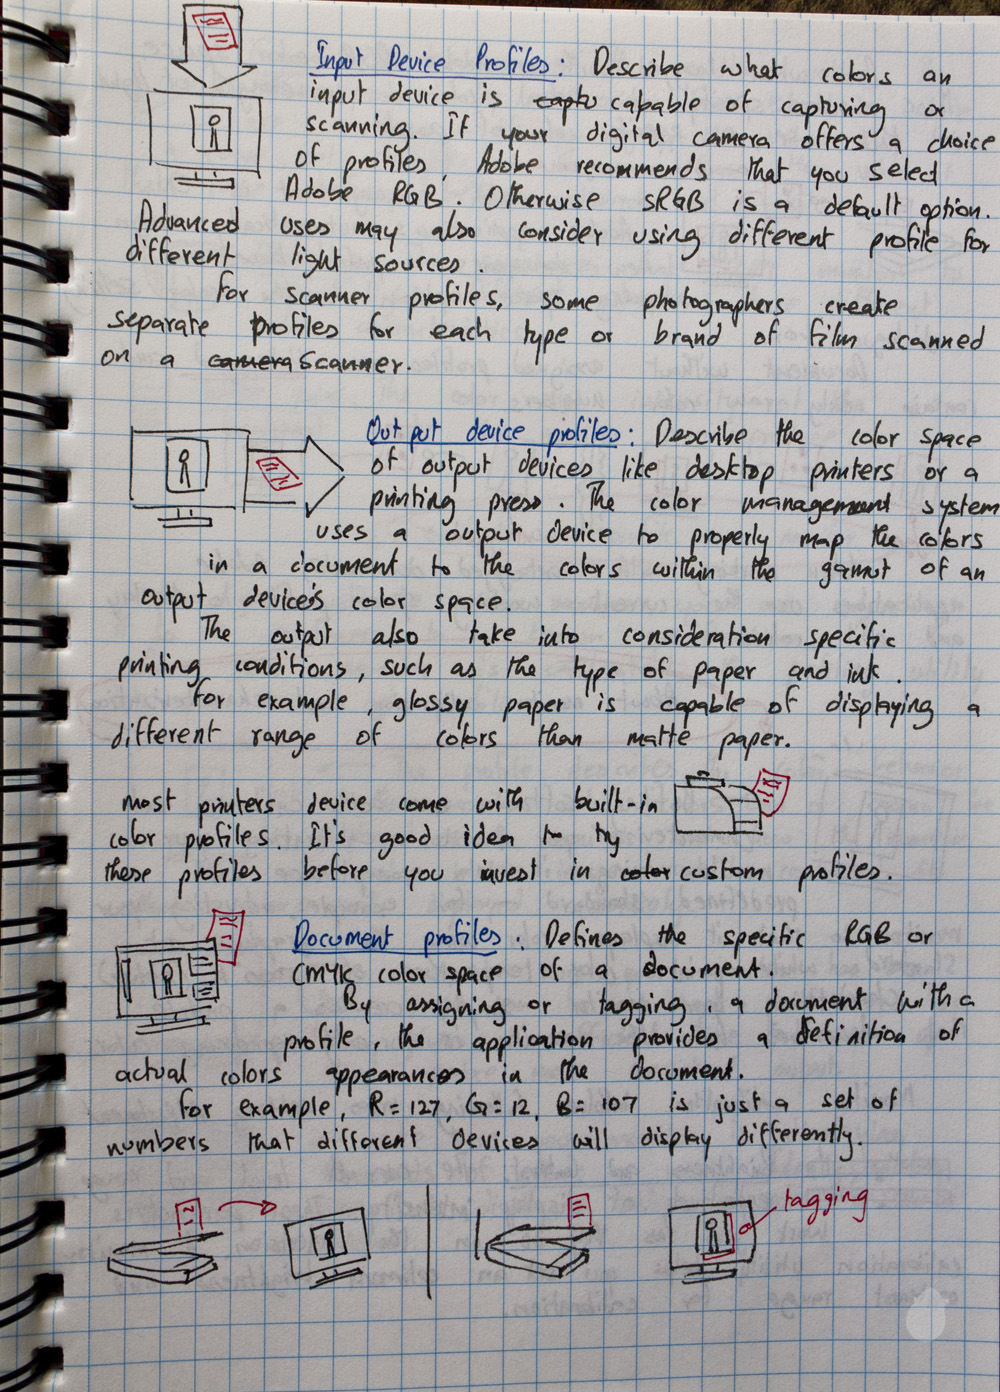 Input Device Profiles: Describe what colors an
input device is captu capable of capturing or
scanning. If your digital camera offers a choice
of profiles, Adobe recommends that you select
Adobe RGB. Otherwise sRGB is a default option.
Advanced uses may also consider using different profile for
different light sources.
For scanner profiles, some photographers create
separate profiles for each type or brand of film scanned
on a camera Scanner.
Output device profiles: Describe the color space
of output devices like desktop printers or a
printing press. The color management system
uses a output device to properly map the colors
in a document to the colors within the gamut of an
output device's color space.
The output also take into consideration specific
printing conditions, such as the type of paper and ink.
For example, glossy paper is capable of displaying a
different range of colors than matte paper.
most printers device come with built-in
color profiles. It's good idea to try
these profiles before you invest in color custom profiles.
Document profiles. Defines the specific RGB or
CMYK color space of a document.
By assigning or tagging, a document with a
profile, the application provides a definition of
actual colors appearances in the document.
For example, R=127, G=12, B=107 is just a set of
numbers that different devices will display differently.
tagging